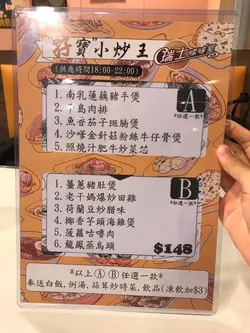 "孖寶"小炒王
(供應時間18:00-22:00)
瑞士
1.南乳蓮藕豬手煲
2.千島肉排
3.魚香茄子斑腩煲
4.沙嗲金針菇粉絲牛仔骨煲
5.照燒汁肥牛炒菜芯
A
*任選一款*
1.薑蔥豬肚煲
2.老干媽爆炒田雞
3.荷蘭豆炒腊味
4.椰香芋頭海雞煲
5.菠蘿咕嚕肉
6.龍鳳蒸烏頭
B
*任選一款*
$148
*以上ⒶⒷ任選一款*
奉送白飯,例湯,蒜茸炒時菜,飲品(凍飲加$3)